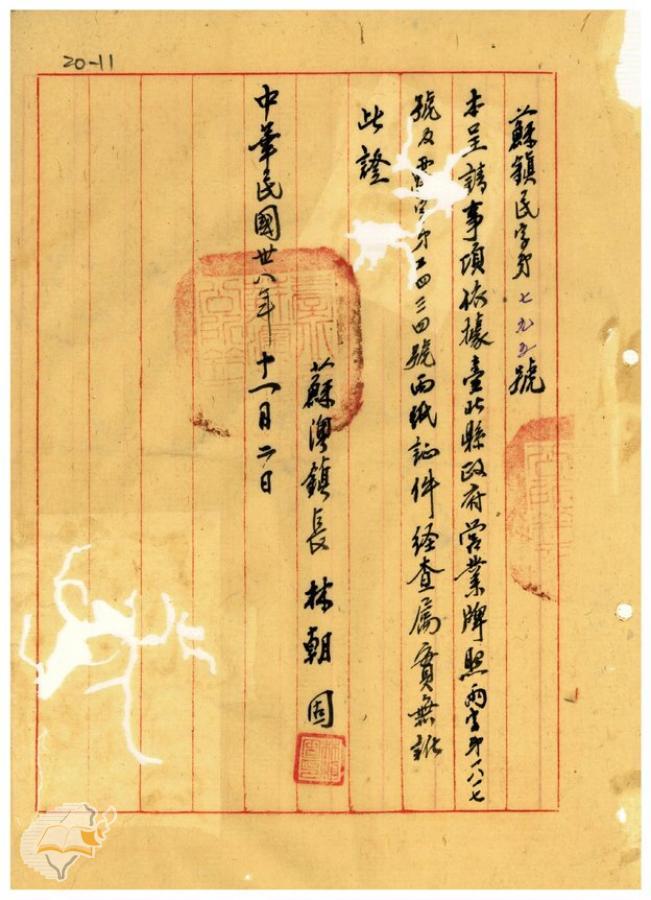 20-11
蘇鎮民字第七九五號
本呈請事項依據臺北縣政府營業牌照兩字第一八一七
號及字第二四三四號兩紙証件経查属實無訛
此證
蘇澳鎮長 林朝固
中華民國卅八年十一月二日